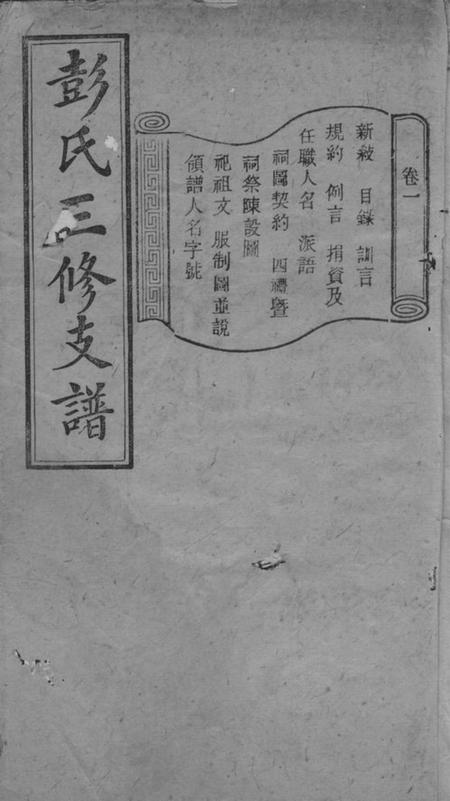 彭氏三修支譜
卷一
新敍 目錄 訓言
規約 例言 捐資及
任職人名 派語
祠圖契約 四禮暨
祠祭陳設圖
祀祖文 服制圖並說
領譜人名字號